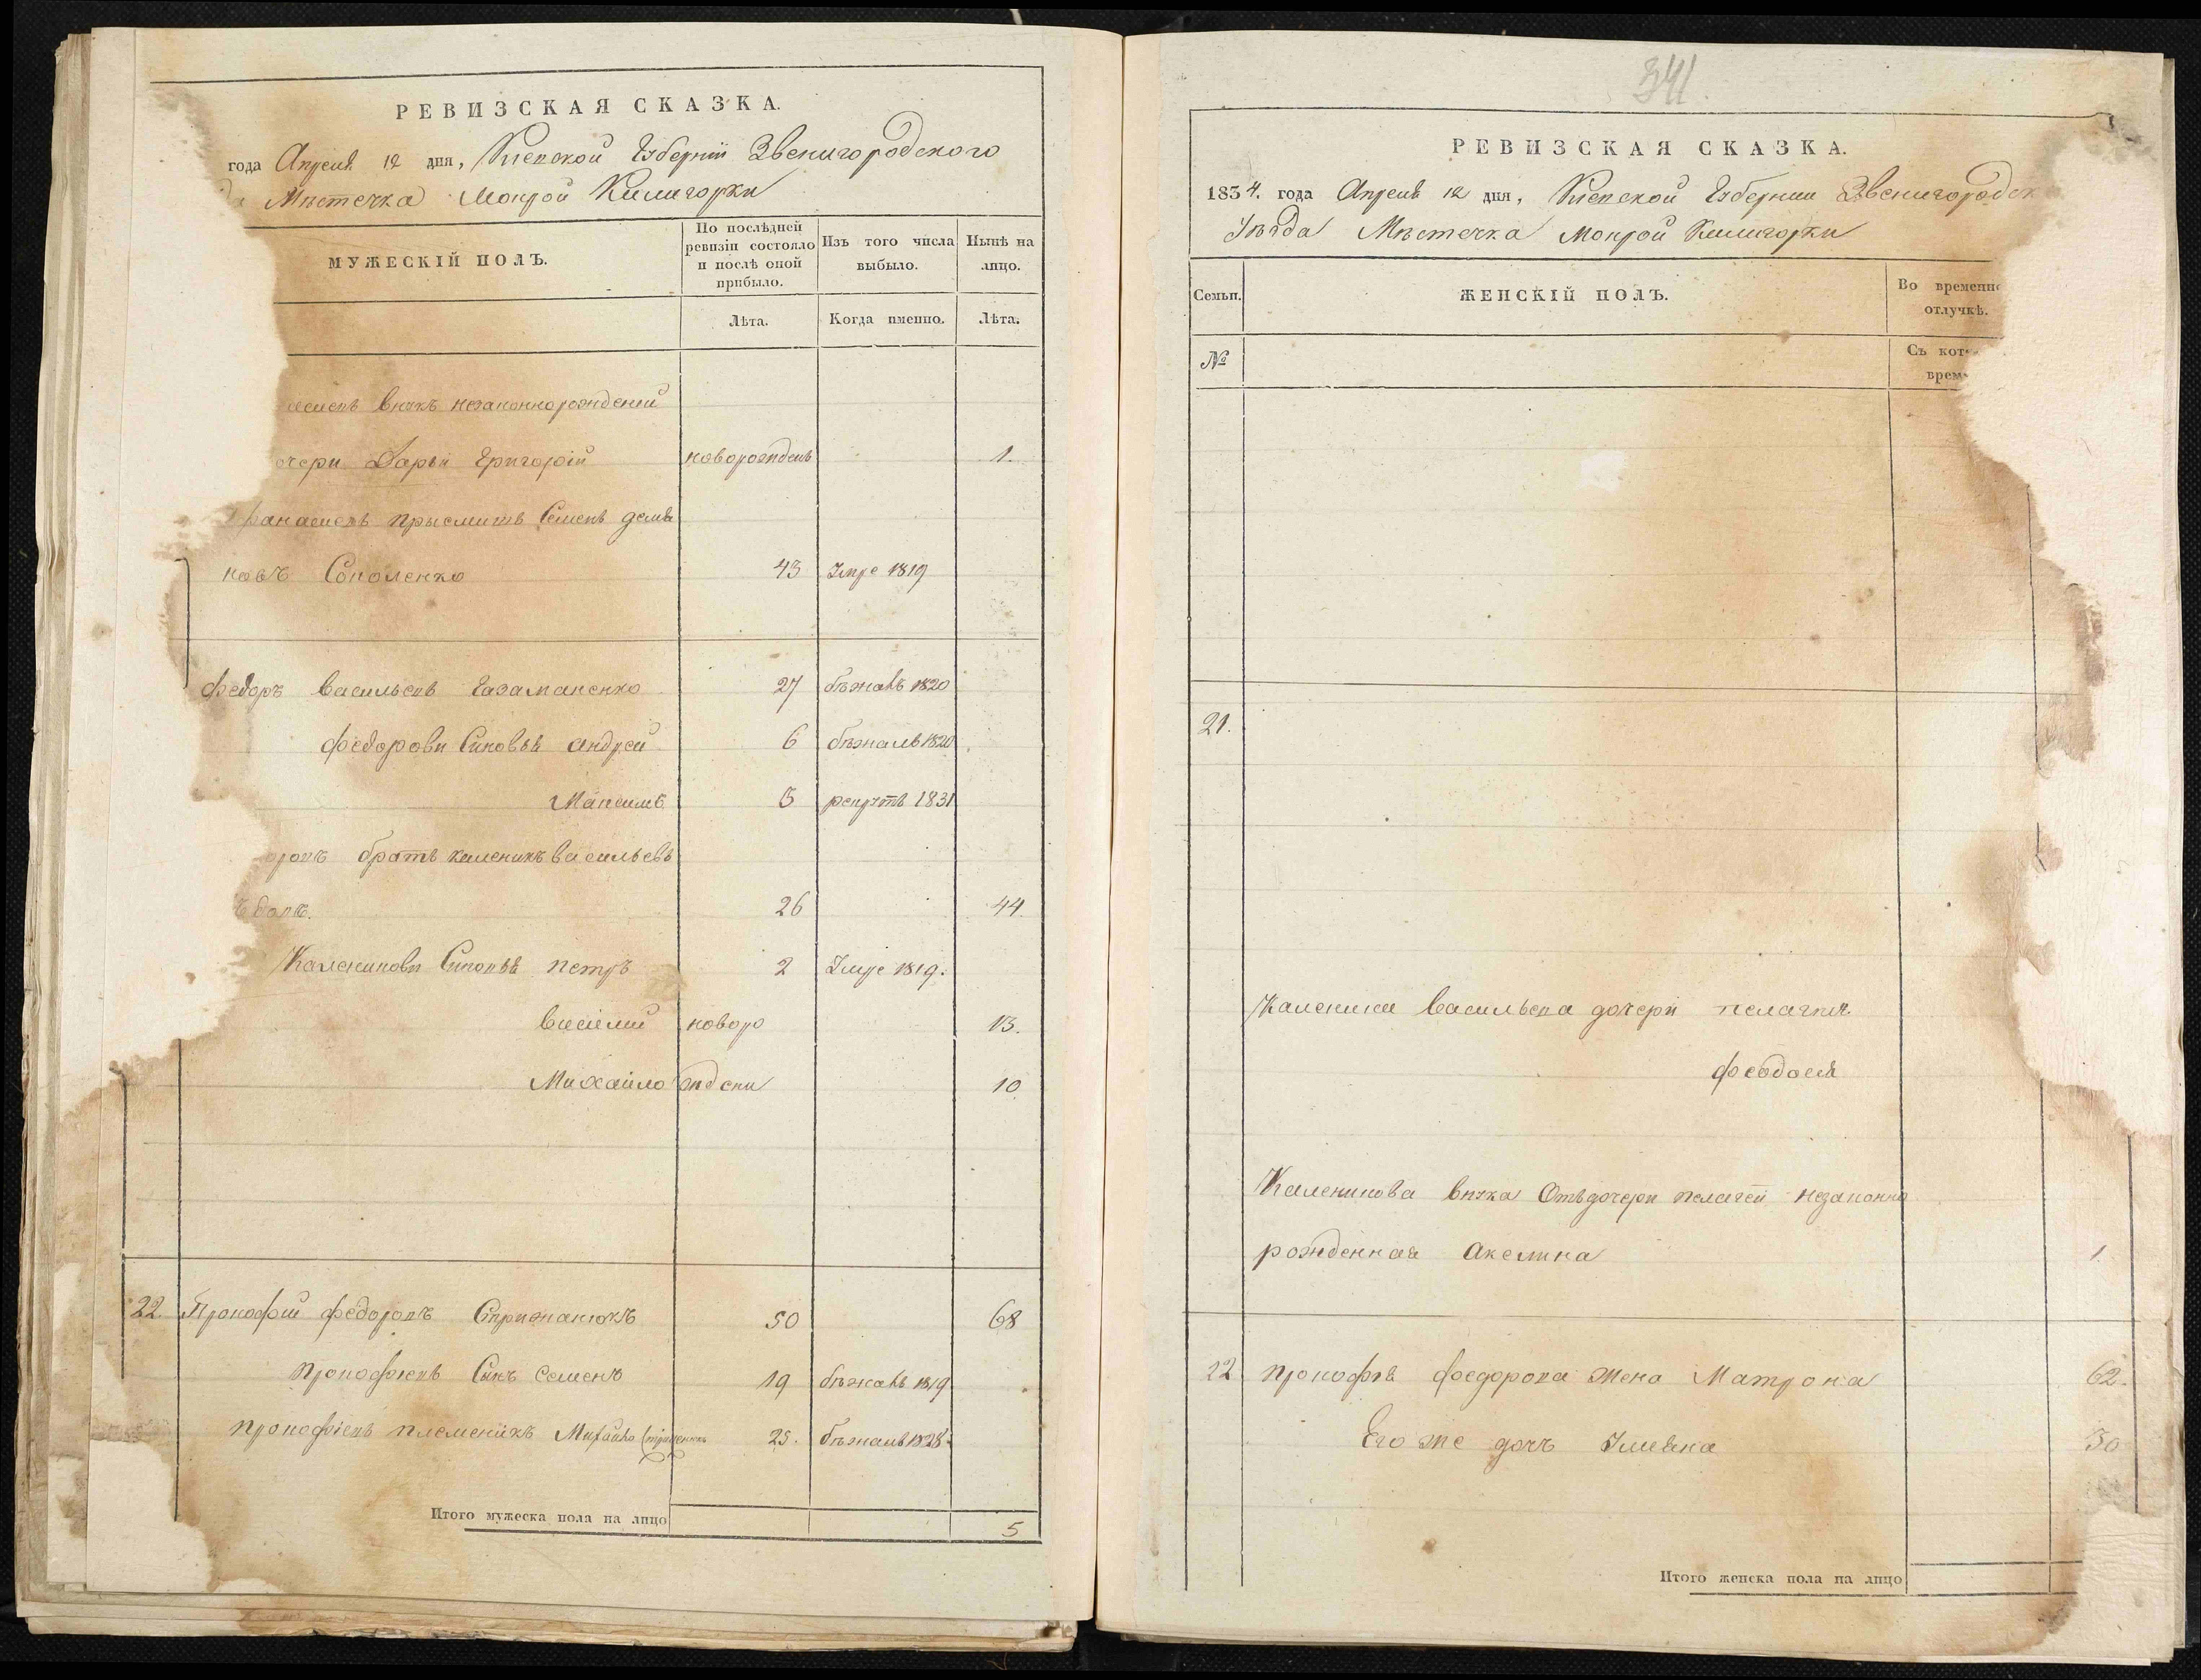 РЕВИЗСКАЯ СКАЗКА.
года Апреля 12 дня, Киевской Губерніи Звенигородского
Мѣстечка Мокрой Калигорки
МУЖЕСКІЙ ПОЛЪ.
По послѣдней ревизіи состояло и послѣ оной прибыло.
Изъ того числа выбыло.
Нынѣ на лицо.
Лѣта.
Когда именно.
Лѣта.
внукъ незаконнорожденій
очери Дарьи Григорій новорожденъ 1.
Семенъ демья
новъ Соколенко 43 Умре 1819
Федоръ Васильевъ Газаманенко 27 бѣжавъ 1820
Федорови Синовья Андрей 6 бѣжалъ 1820
Максимъ 5 рекрутъ 1831
братъ Каленикъ Васильевъ
26 44
Каленикови Синовья Петръ 2 Умре 1819.
Василий новоро 13.
Михайло ждени 10
22. Прокофий Федоровъ Скрижанюкъ 50 68
Прокофіевъ Сынъ Семенъ 19 бѣжавъ 1819
Прокофіевъ племеникъ Михайло 25. бѣжалъ 1828
Итого мужеска пола на лицо 5
341.
РЕВИЗСКАЯ СКАЗКА.
1834. года Апреля 12 дня, Киевской Губернии Звенигородск
Уѣзда Мѣстечка Мокрой Калигорки
Семьи.
ЖЕНСКІЙ ПОЛЪ.
Во временно
отлучкѣ.
№
Съ кот
врем
21.
Каленика Васильева дочери Пелагия
Феодосия
Каленикова внука Отъ дочери Пелагеи незаконно
рожденная Акелина 1.
22 Прокофія Федорова Жена Матрона 62.
Его же дочь Улияна 30
Итого женска пола на лицо